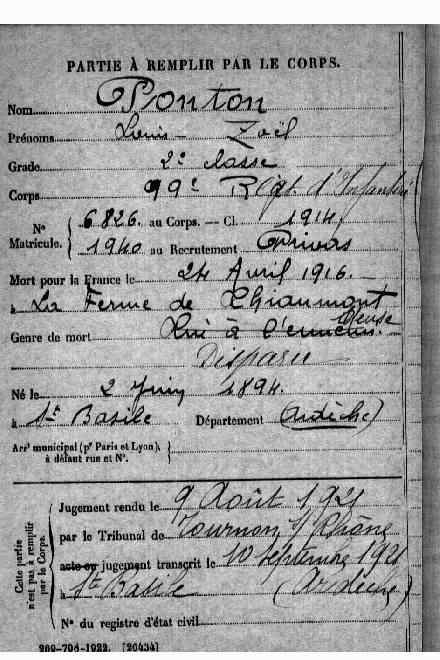 PARTIE À REMPLIR PAR LE CORPS.
Nom Ponton
Prénoms Louis Zoël
Grade 2e classe
Corps 99e Régt d'Infanterie
N° Matricule. 6826. au Corps. — Cl. 1914
1940 au Recrutement Privas
Mort pour la France le 24 Avril 1916.
à La Ferme de Thiaumont
Meuse
Genre de mort Tué à l'ennemi.
Disparu
Né le 2 Juin 1894.
à St Basile Département (Ardèche)
Arrt municipal (pr Paris et Lyon), à défaut rue et N°.
Cette partie n'est pas à remplir par le Corps.
Jugement rendu le 9 Août 1921
par le Tribunal de Tournon s/ Rhône
acte ou jugement transcrit le 10 Septembre 1921
à St Basile (Ardèche)
N° du registre d'état civil
269-708-1922. [26434]